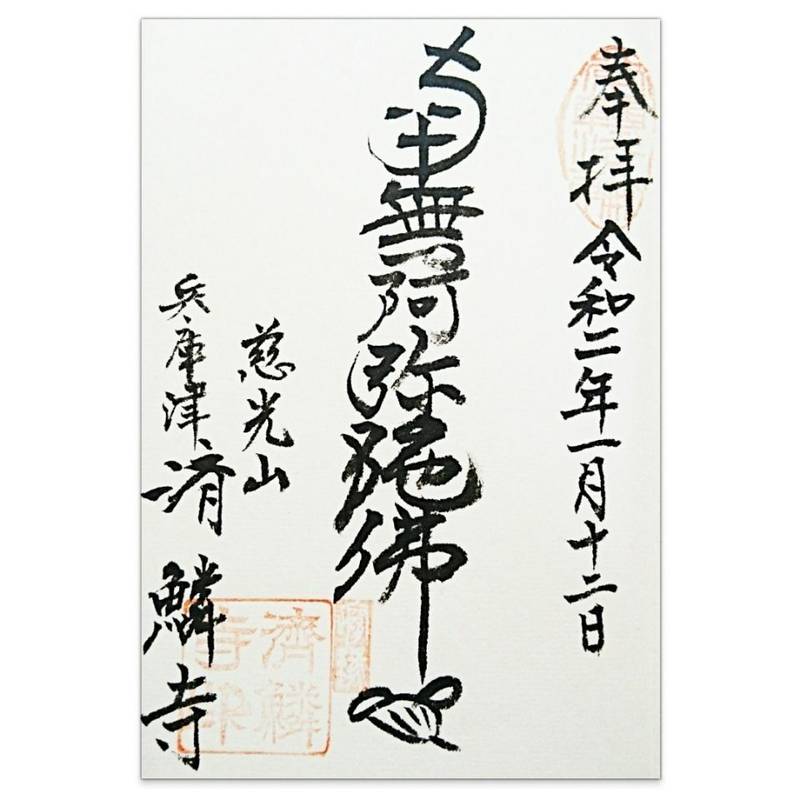 奉拝 令和二年一月十二日
南無阿弥陀佛
慈光山
兵庫津 済鱗寺
濟鱗寺印